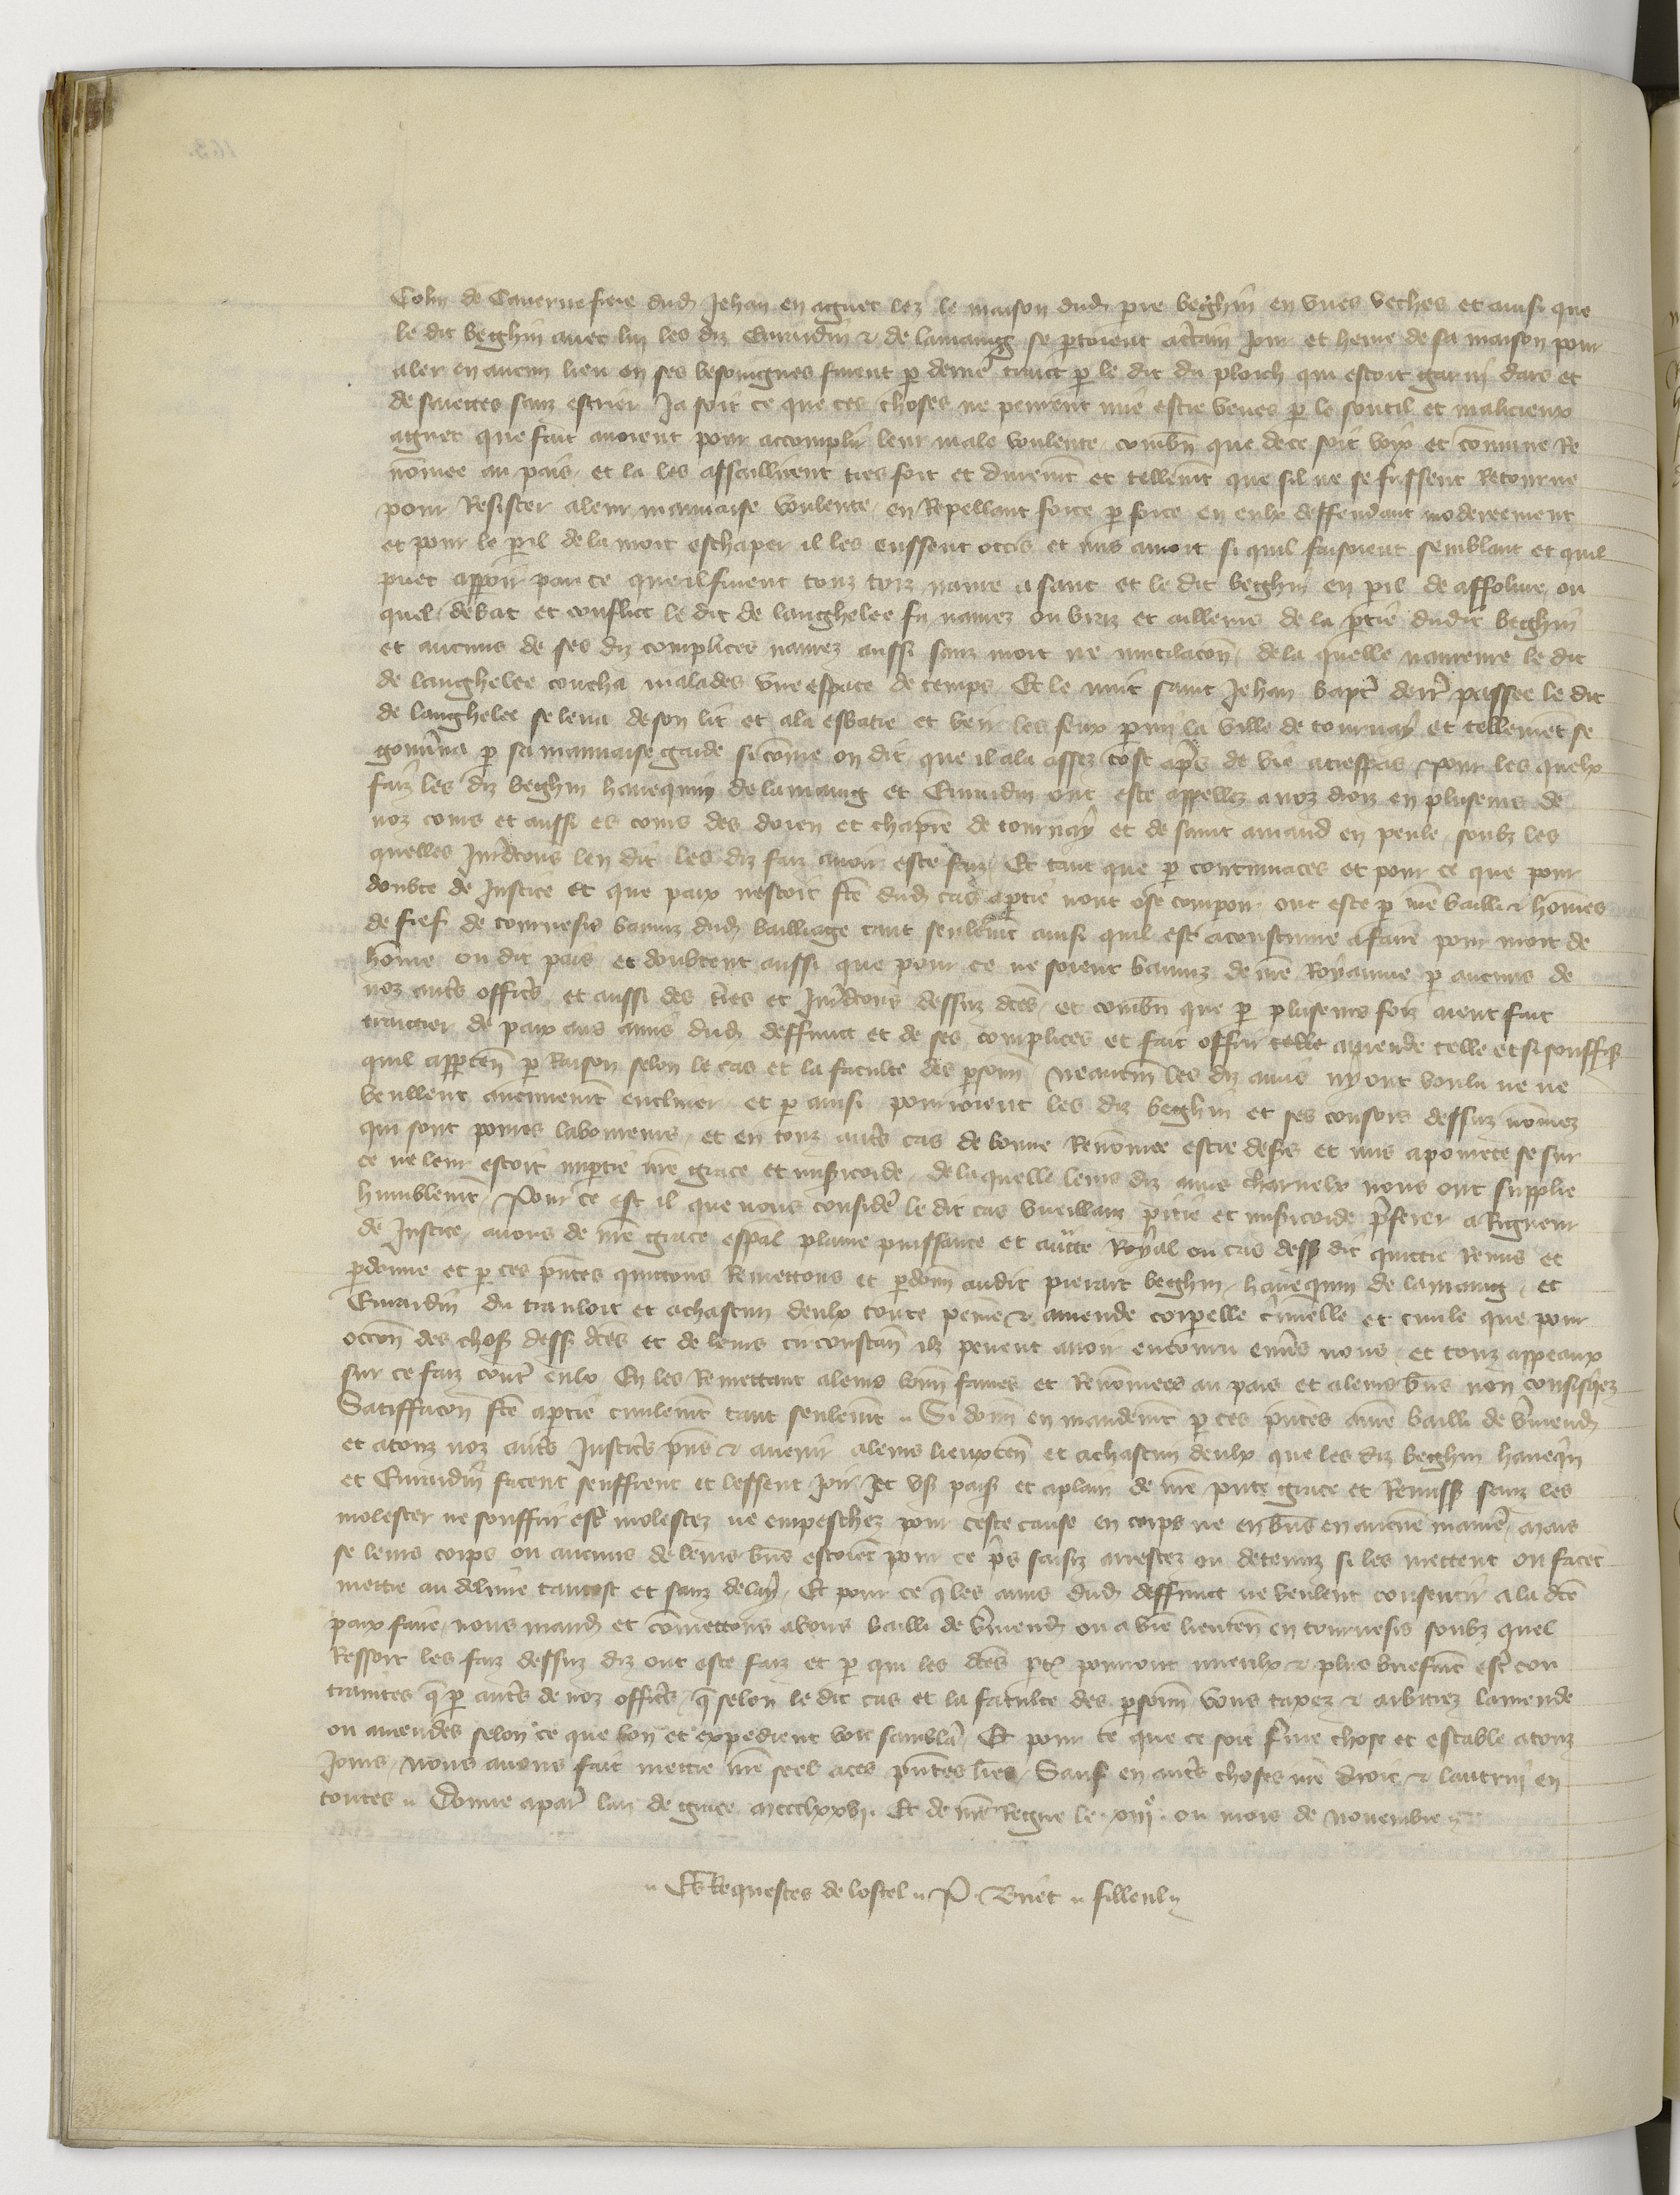 Colin de Cauerue frere dud Jehan en aguet lez le maison dud pre beghin en vnes veches et ainsi que
le dit beghin auec lui les diz Euurardin & de lannaing se ptoient actain jour et heure de sa maison pour
aler en aucun lieu en ses besoingnes furent p derrie traict p le dit du ploich qui estoit garni darc et
de saiettes sanz escrier Ja soit ce que ces choses ne peurent mie estre veues p le soutil et malicieux
aguet que fait auoient pour accomplir leur male voulente combn que de ce soit voix et comune Re
nomee au pais et la les assaillirent tres fort et duremt et tellemt que sil ne se fussent Retourne
pour Resister aleur mauuaise voulente en Repellant force p force en eulx deffendant modereement
et pour le pil de la mort eschaper il les eussent occis et mis amort si quil faisoient semblant et quil
puet apparoir par ce que il furent touz troiz naure a sanc et le dit beghin en pil de affolure ou
quel debat et conflict le dit de langhelee fu naurez ou vriz et ailleurs de la ptie dudit beghin
et aucuns de ses diz complices naurez aussi sanz mort ne mutilacon de la quelle naureure le dit
de langhelee coucha malades vne espace de temps Et le nuit saint Jehan bapt derr passee le dit
de langhelee se leua de son lit et ala esbatre et veir les feux parmi la ville de tournay et tellemet se
gouuna p sa mauuaise garde si come on dit que il ala assez tost aps de vie a trespas pour les quelx
faiz les diz beghin hanequin de lannaing et Euurardin ont este appellez a noz droiz en pluseurs de
noz cours et aussi es cours des doien et chapitre de tournay et de saint amand en peule soubz les
quelles Jurdcons len dit les diz faiz auoir este faiz Et tant que p contumaces et pour ce que pour
doubte de Justice et que paix nestoit fte dud cas a ptie nont ose comparoir ont este p nre bailli & homes
de fief de tournesis baniz dud bailliage tant seulemt ainsi quil est acoustume a faire pour mort de
home ou dit pais et doubtent aussi que pour ce ne soient baniz de nre Royaume p aucuns de
noz auts officrs et aussi des tres et Jurdcons dessuz dces et combn que p pluseurs foiz aient fait
traictier de paix aus amis dud deffunct et de ses complices et fait offrir telle amende telle et si souffis
quil appten p Raison selon le cas et la faculte des psonn neantm les diz amis ny ont voulu ne ne
veullent aucunemt encliner et p ainsi pourroient les diz beghin et ses consors dessuz nomez
qui sont poures laboureurs et en touz auts cas de bonne Renomee estre desers et mis a pourete se sur
ce ne leur estoit imptie nre grace et misicorde de laquelle leurs diz amis charnelx nous ont supplie
humblemt Pour ce est il que nous consider le dit cas vueillanz pitie et misicorde pferer a Rigueur
de Justice auons de nre grace espal plaine puissance et auctte Royal ou cas dess dit quictie Remis et
pdonne et p ces pntes quittons Remettons et pdonn audit pierart beghin hanequin de lannaing et
Euurardin du tranloit et achascun deulx toute peine & amende corpelle criminelle et ciuile que pour
occon des chos dess dces et de leurs circonstan ilz peuent auoir encouru enuers nous et touz appeaux
sur ce faiz contr eulx En les Remettant aleurs bonn fames et Renomees au pais et aleurs bns non consisqez
Satiffacon fte aptie ciuilemt tant seulemt Si donn en mandemt p ces pntes anre bailli de vermend
et atouz noz auts Justicrs pns & auenir aleurs lieuxten et achascun deulx que les diz beghin haneqin
et Euurardin facent seuffrent et lessent joir et vs pais et aplain de nre pnte grace et Remiss sanz les
molester ne souffrir estr molestez ne empeschez pour ceste cause en corps ne en bns en aucune maniere mais
se leurs corps ou aucuns de leurs bns estoient pour ce ps saisiz arrestez ou detenuz si les mettent ou facet
mettre au deliure tantost et sanz delay Et pour ce q les amis dud deffunct ne veulent consentir ala dce
paix faire nous mand et comettons auous bailli de vermend ou a vre lieuten en tournesis soubz quel
Ressort les faiz dessuz diz ont este faiz et p qui les dces pties pourront mieulx & plus briefmt estr con
traintes q p auts de noz officrs q selon le dit cas et la faculte des psonn vous taxez & arbitrez lamende
ou amendes selon ce que bon et expedient vous sambla Et pour ce que ce soit ferme chose et estable atouz
jours nous auons fait mettre nre seel aces pntes lres Sauf en auts choses nre droit & lautrui en
toutes Donne apar lan de grace mccclxxvi Et de nre Regne le xiije ou mois de nouembre
Es Requestes de lostel P. Briet filleul